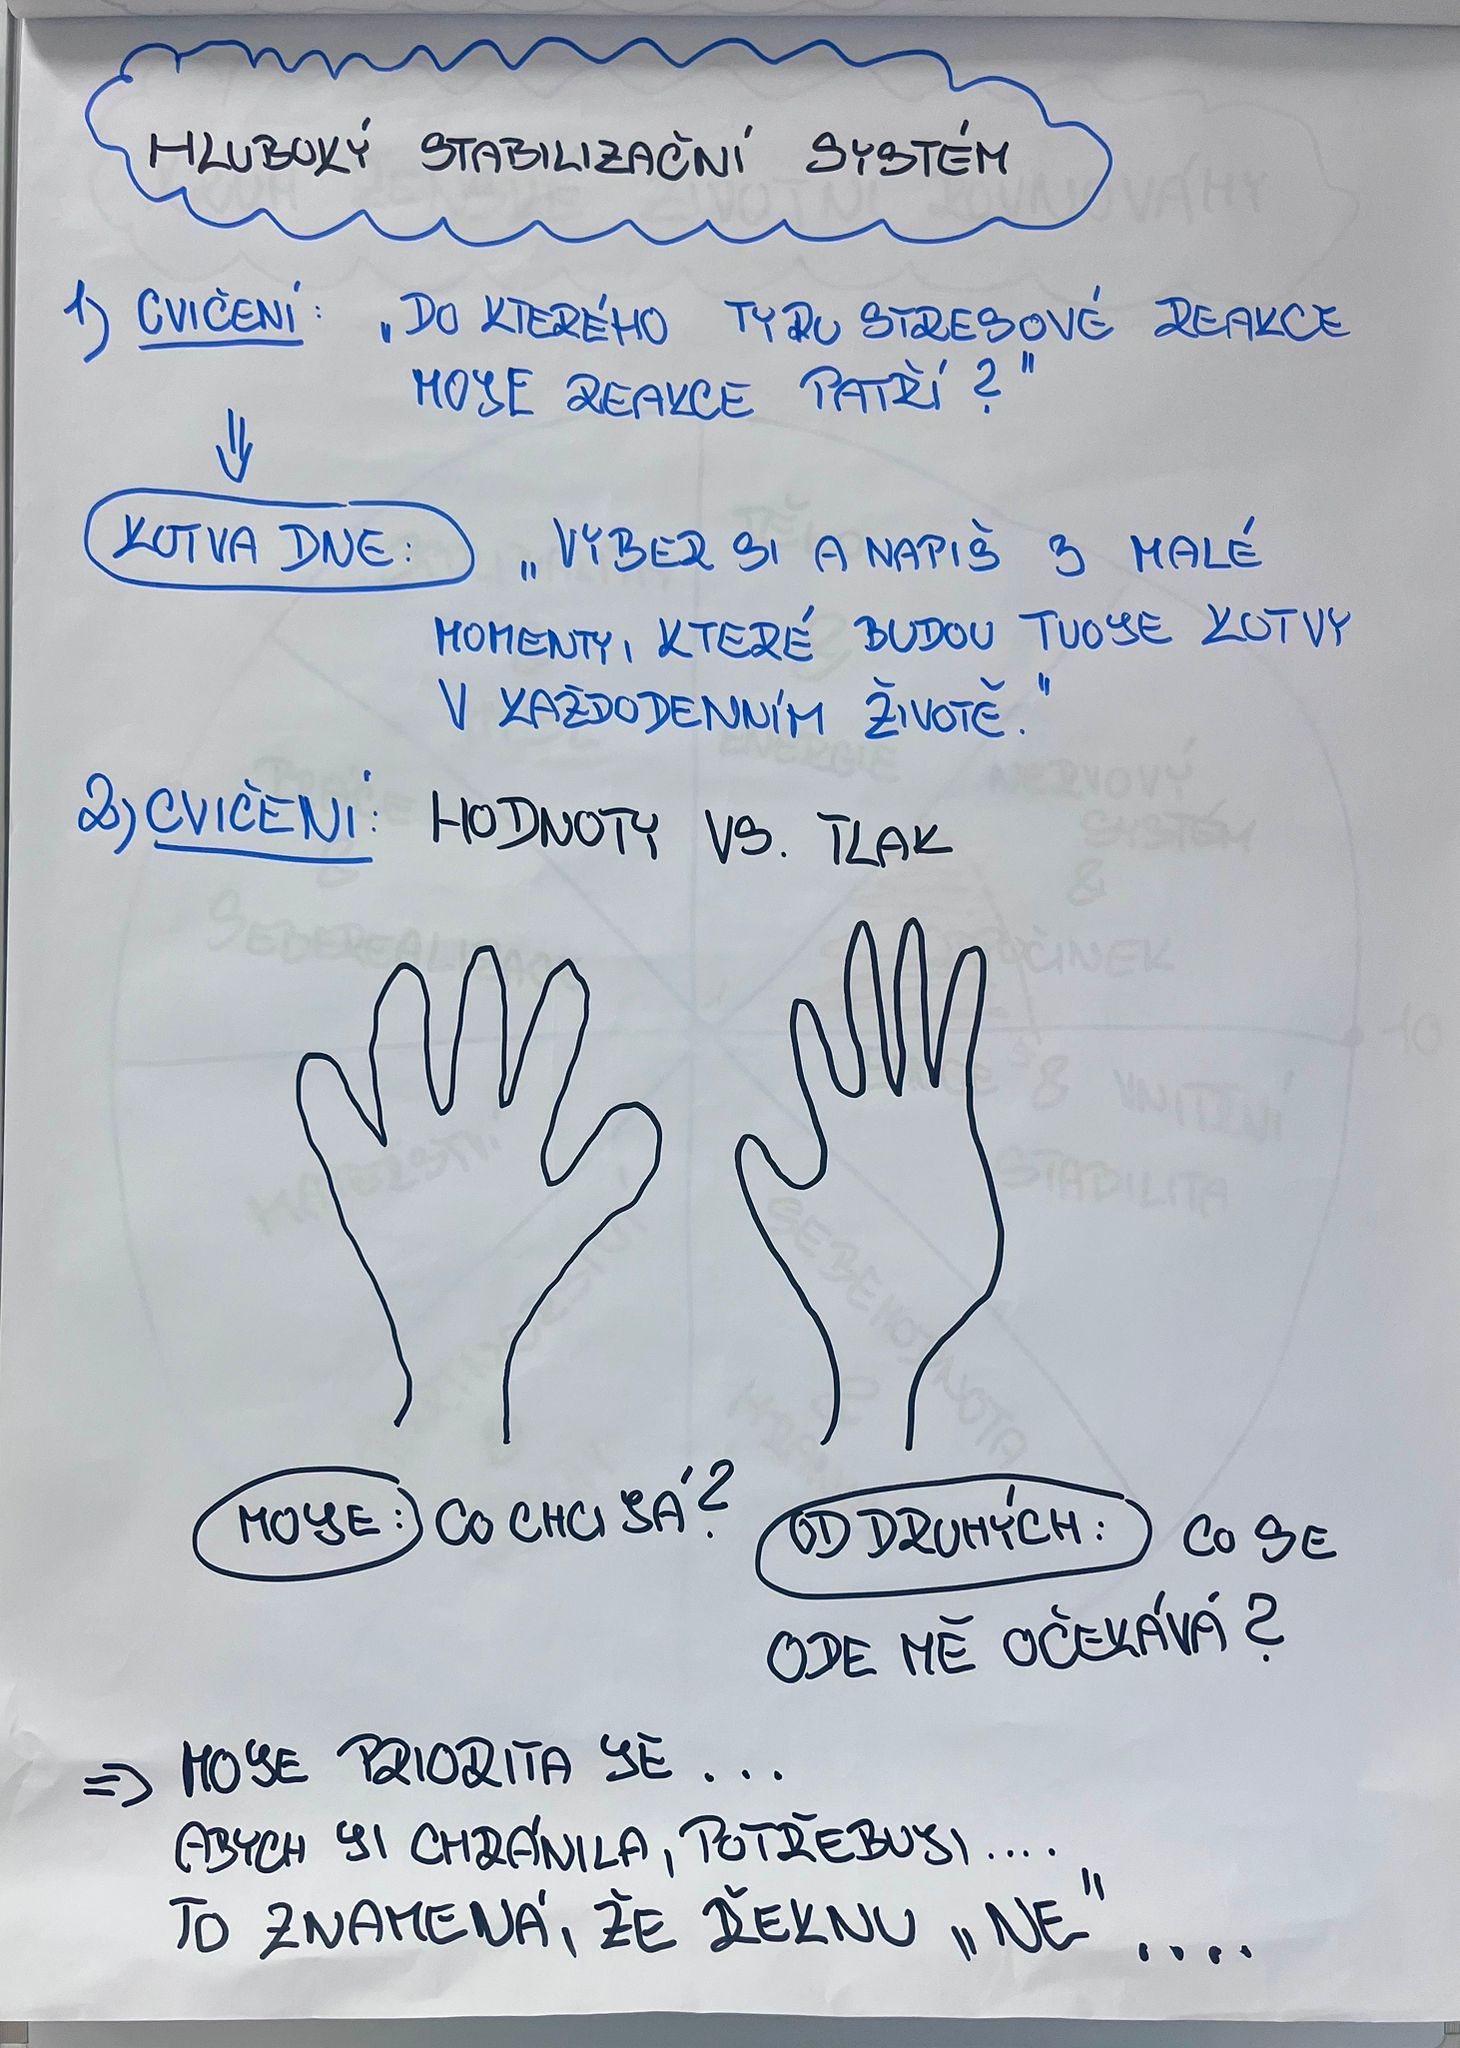 HLUBOKÝ STABILIZAČNÍ SYSTÉM
1) CVIČENÍ: „DO KTERÉHO TYPU STRESOVÉ REAKCE
MOJE REAKCE PATŘÍ?"
KOTVA DNE: „VYBER SI A NAPIŠ 3 MALÉ
MOMENTY, KTERÉ BUDOU TVOJE KOTVY
V KAŽDODENNÍM ŽIVOTĚ."
2) CVIČENÍ: HODNOTY VS. TLAK
MOJE: CO CHCI JÁ?
OD DRUHÝCH: CO SE
ODE MĚ OČEKÁVÁ?
=> MOJE PRIORITA JE ...
ABYCH JI CHRÁNILA, POTŘEBUJI ....
TO ZNAMENÁ, ŽE ŘEKNU „NE" ....
TĚLO
ENERGIE
NERVOVÝ
SYSTÉM
&
PRÁCE
&
SEBEREALIZACE
10
VNITŘNÍ
STABILITA
MATEŘSTVÍ
SEBEHODNOTA